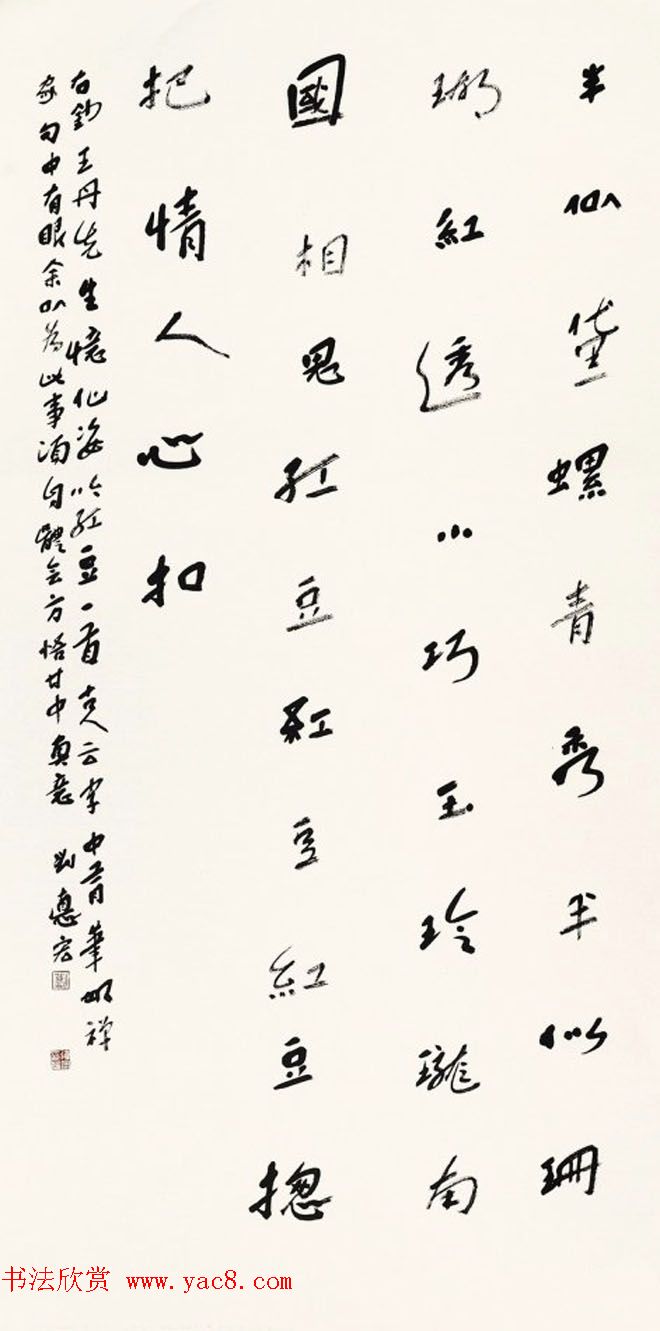 半似黛螺青秀半似珊
瑚紅透小巧玉玲瓏南
國相思紅豆紅豆紅豆摠
把情人心扣
右鈔王丹先生憶仙姿吟紅豆一首古人云字中有筆如禅
家句中有眼余以為此事須自體會方悟其中奥意 劉惠宏
书法欣赏 www.yac8.com